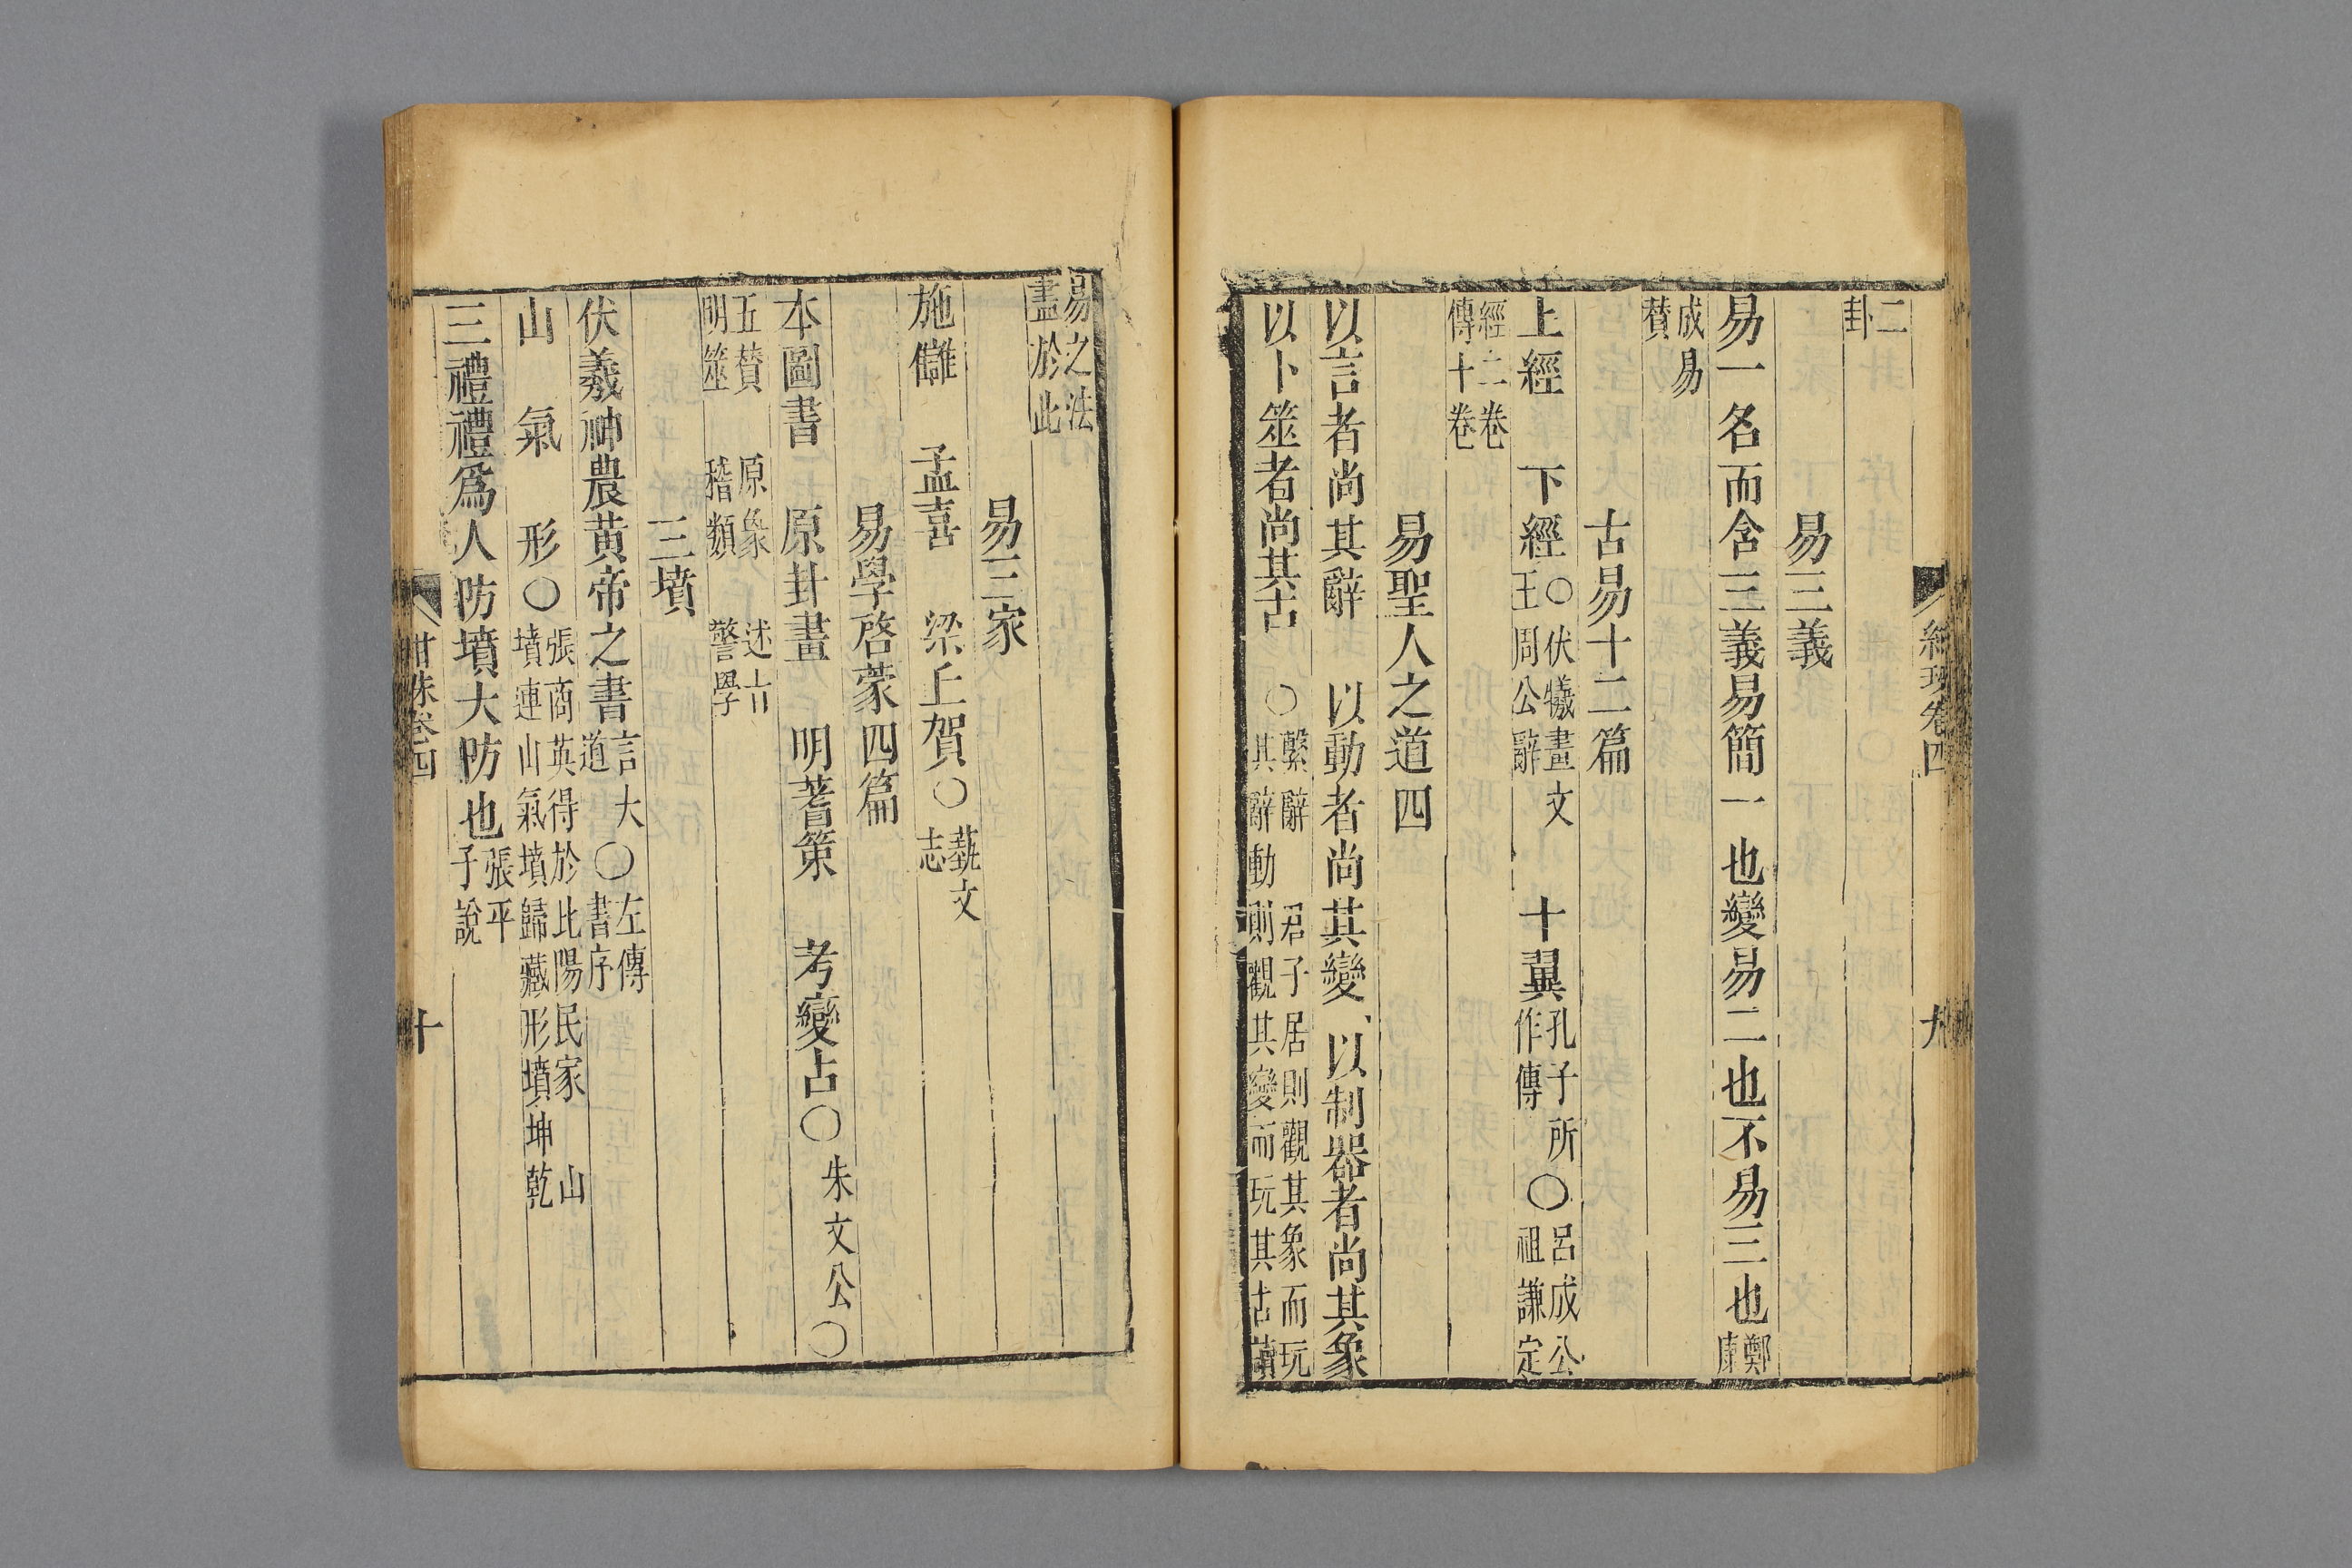 二
卦
易三義
易一名而含三義易簡一也變易二也不易三也鄭
康
成易
賛
古易十二篇
上經 下經○伏犧畫文
王周公辭
十翼孔子所
作傳
○呂成公
祖謙定
經二卷
傳十卷
易聖人之道四
以言者尚其辭 以動者尚其變 以制器者尚其象
以卜筮者尚其占 ○繫辭 君子居則觀其象而玩
其辭動則觀其變而玩其占
九
易之法
盡於此
易三家
施讎 孟喜 梁丘賀○藝文
志
易學啓蒙四篇
本圖書 原卦畫 明蓍策 考變占○朱文公○
五賛 原象 述
明筮 稽類 警學
三墳
伏羲神農黃帝之書言大
道
○左傳
書序
山 氣 形○張商英得於比陽民家 山
墳連山氣墳歸藏形墳坤乾
三禮禮爲人防墳大防也張平
子說
卷四
十